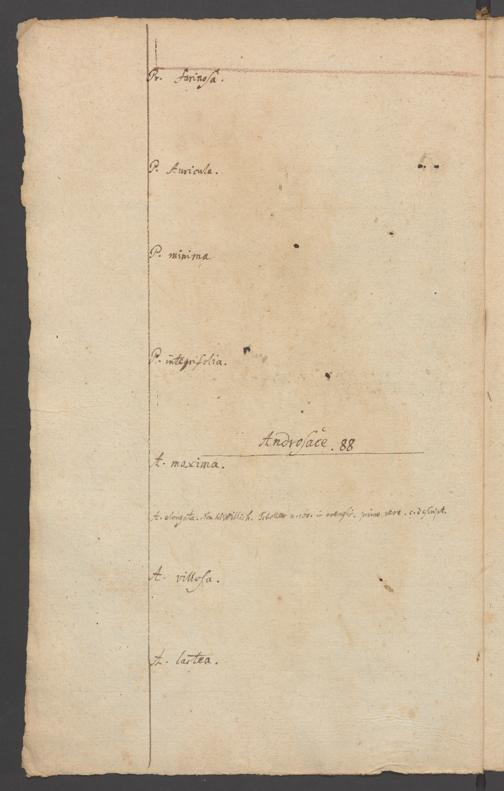 Pr. farinosa.
P. Auricula.
P. minima
P. integrifolia.
Androsace. 88
A. maxima.
A. elongata. primo vere. c. descript.
A. villosa.
A. lactea.